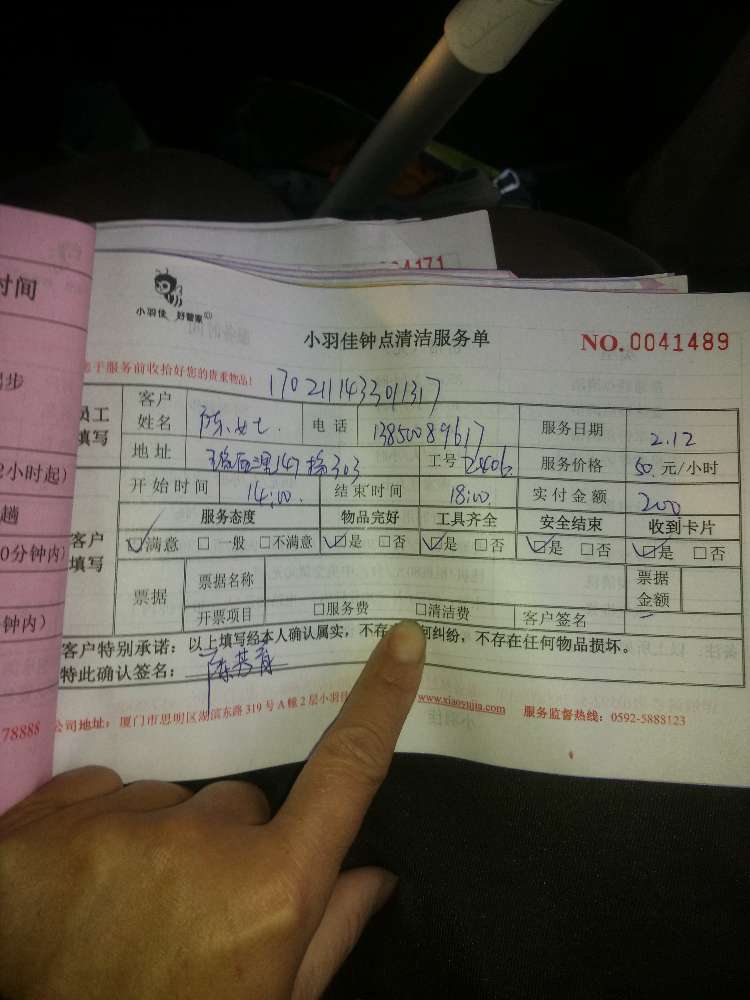 04171
时间
小羽佳 好管家
小羽佳钟点清洁服务单
NO. 0041489
于服务前收拾好您的贵重物品!
170211143301317
员工填写
客户姓名 陈女士 电话 13850089617 服务日期 2.12
地址 147栋303 工号 2406 服务价格 50.元/小时
2小时起)
开始时间 14:00 结束时间 18:00 实付金额 200
趟
服务态度 物品完好 工具齐全 安全结束 收到卡片
0分钟内)
客户填写
☑满意 □一般 □不满意 ☑是 □否 ☑是 □否 ☑是 □否 ☑是 □否
票据 票据名称 票据金额
钟内)
开票项目 □服务费 □清洁费 客户签名
客户特别承诺:以上填写经本人确认属实,不存 何纠纷,不存在任何物品损坏。
特此确认签名:
78888
公司地址:厦门市思明区湖滨东路319号A幢2层小羽佳 www.xiaoyujia.com 服务监督热线:0592-5888123